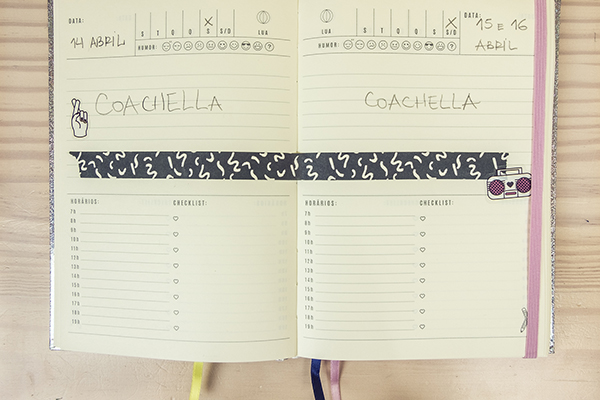 DATA:
14 ABRIL
S T Q Q S S/D LUA
HUMOR:
COACHELLA
HORÁRIOS: CHECKLIST:
7h
8h
9h
10h
11h
12h
13h
14h
15h
16h
17h
18h
LUA S T Q Q S S/D
DATA:
15 E 16
ABRIL
HUMOR:
COACHELLA
HORÁRIOS: CHECKLIST:
7h
8h
9h
10h
11h
12h
13h
14h
15h
16h
17h
18h